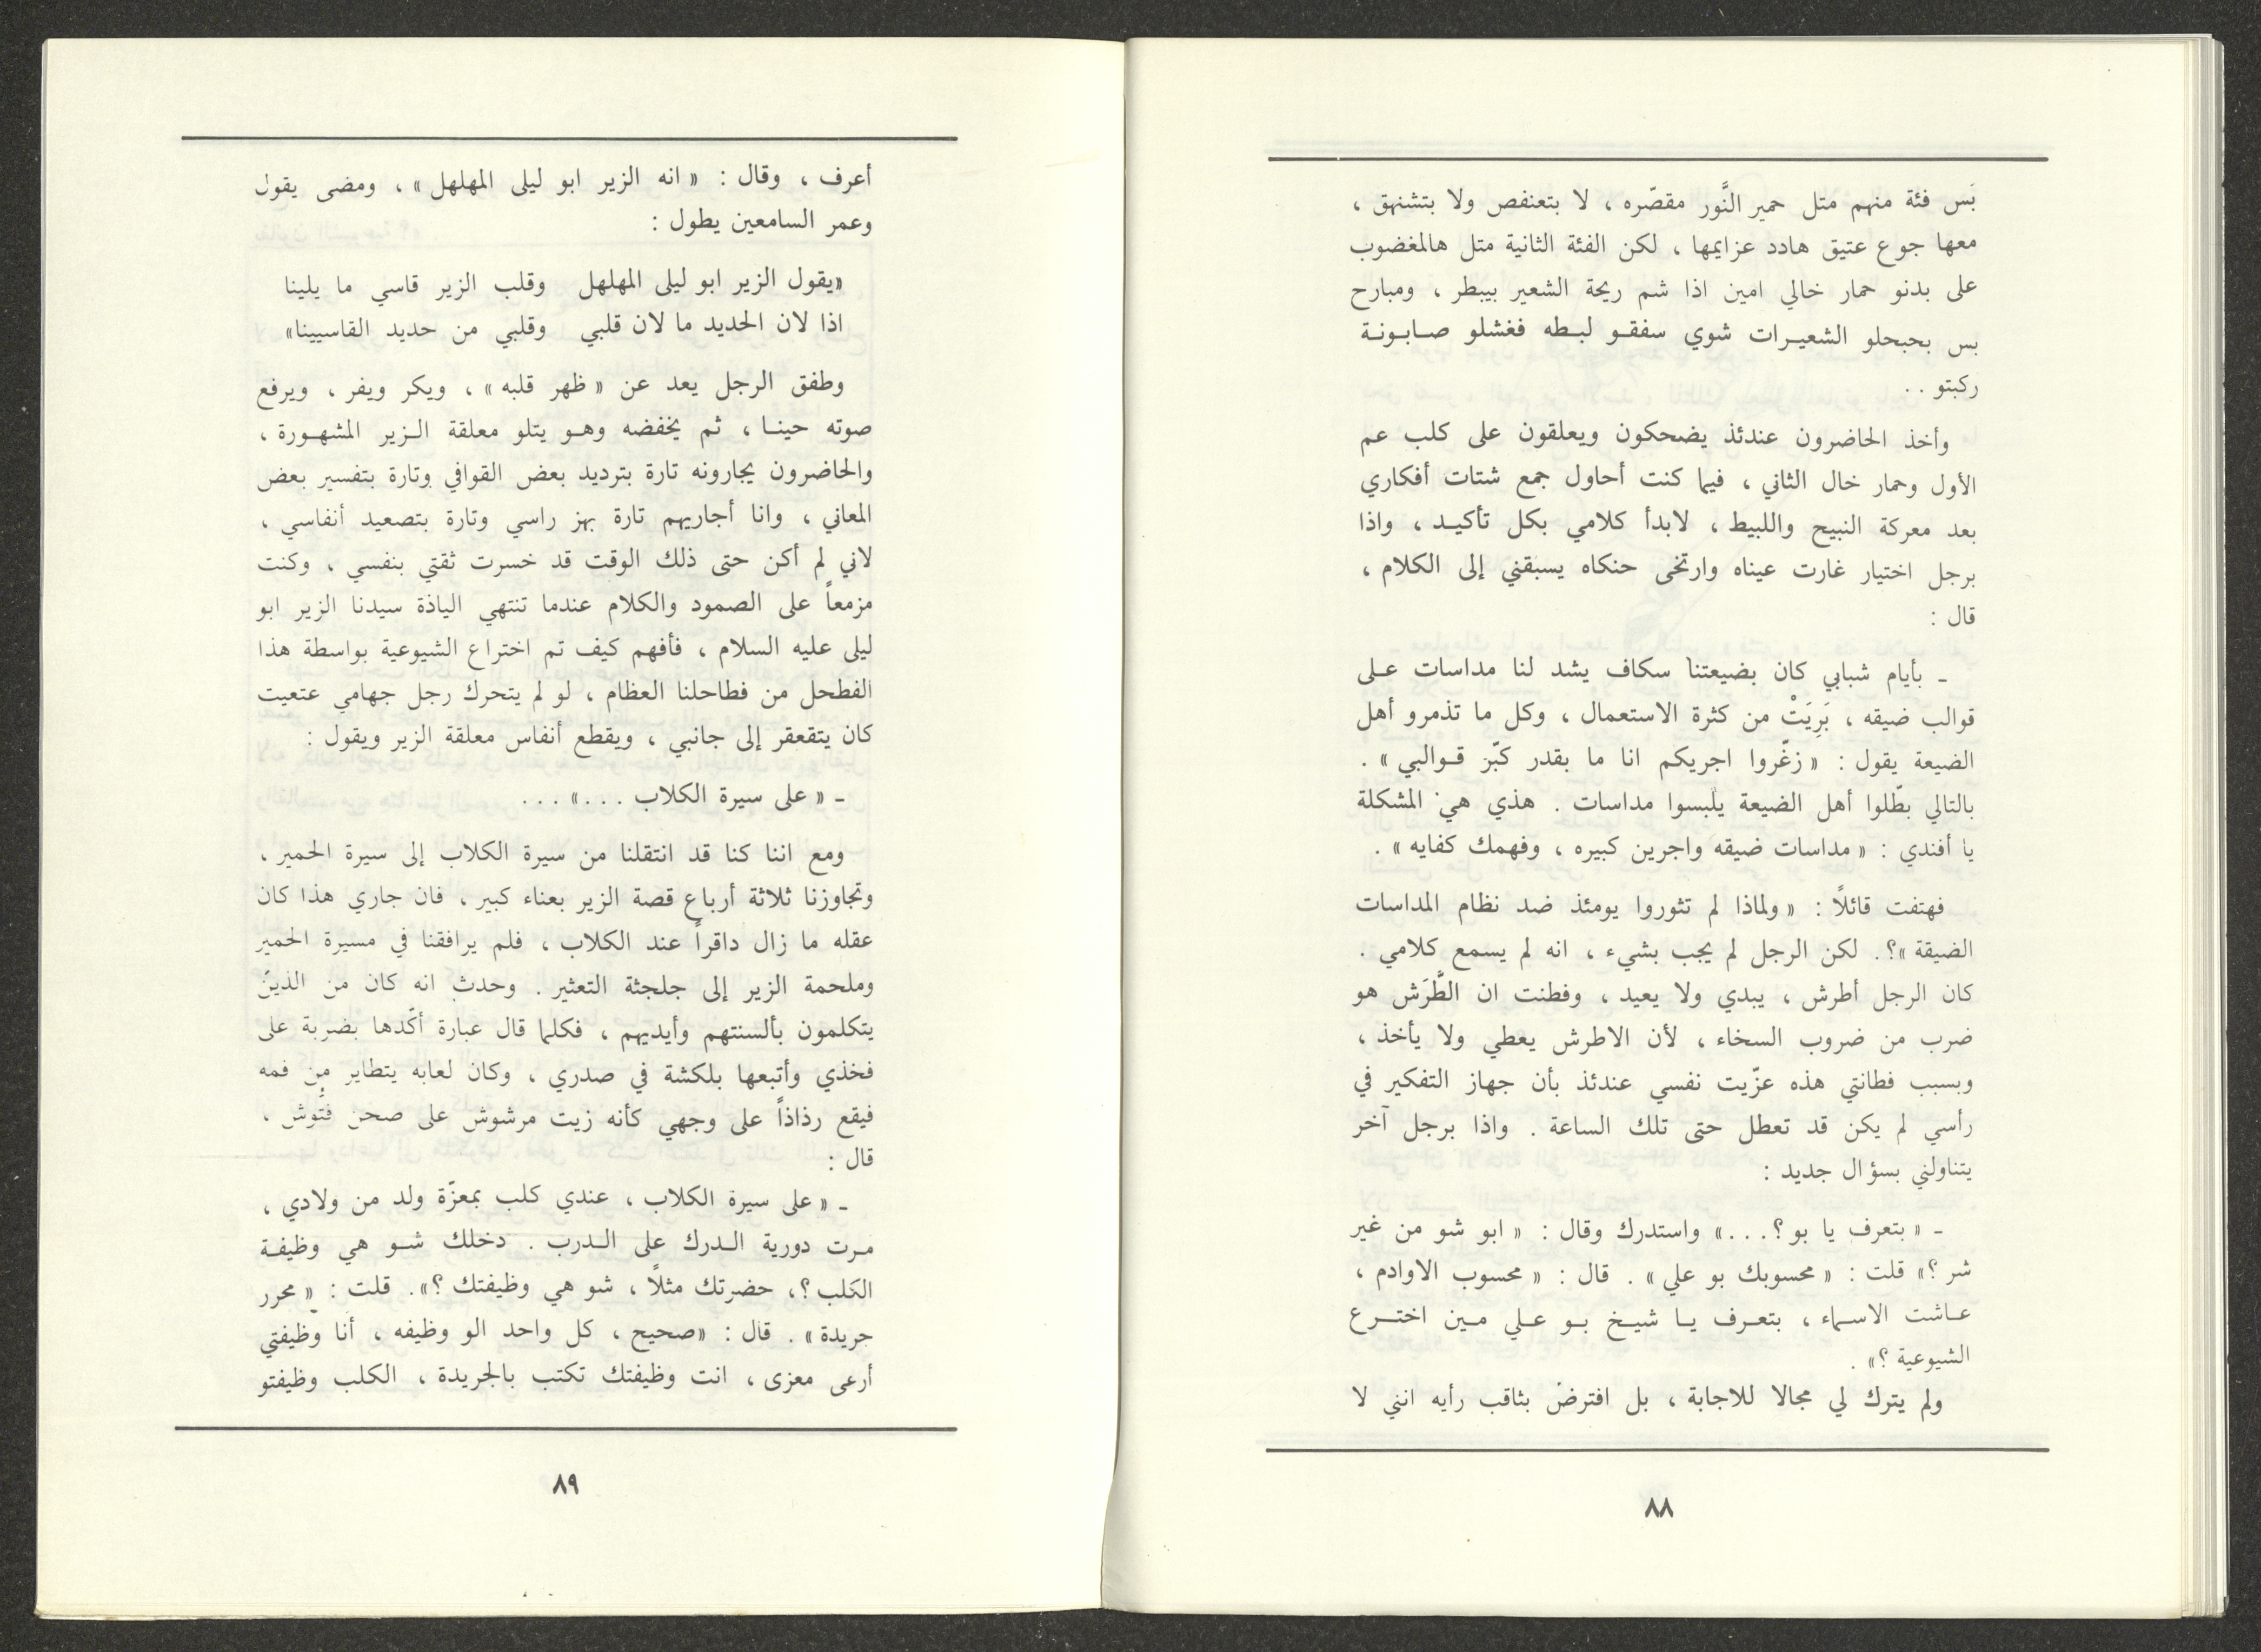 بَس فئة منهم متل حمير النَّور مقصّره ، لا بتعنفص ولا بتشنهق ،
معها جوع عتيق هادد عزايمها ، لكن الفئة الثانية متل هالمغضوب
على بدنو حمار خالي امين اذا شم ريحة الشعير بيبطر ، ومبارح
بس بحبحلو الشعيرات شوي سفقو لبطه فغشلو صابونة
ركبتو . .
وأخذ الحاضرون عندئذ يضحكون ويعلقون على كلب عم
الأول وحمار خال الثاني ، فيما كنت أحاول جمع شتات أفكاري
بعد معركة النبيح واللبيط ، لابدأ كلامي بكل تأكيد ، واذا
برجل اختيار غارت عيناه وارتخى حنكاه يسبقني إلى الكلام ،
قال :
ـ بأيام شبابي كان بضيعتنا سكاف يشد لنا مداسات على
قوالب ضيقه ، بَرِيَتْ من كثرة الاستعمال ، وكل ما تذمرو أهل
الضيعة يقول : « زغّروا اجريكم انا ما بقدر كبّر قوالبي » .
بالتالي بطّلوا أهل الضيعة يلبسوا مداسات . هذي هي المشكلة
يا أفندي : « مداسات ضيقه واجرين كبيره ، وفهمك كفايه » .
فهتفت قائلاً : « ولماذا لم تثوروا يومئذ ضد نظام المداسات
الضيقة »؟. لكن الرجل لم يجب بشيء ، انه لم يسمع كلامي .
كان الرجل أطرش ، يبدي ولا يعيد ، وفطنت ان الطَّرَش هو
ضرب من ضروب السخاء ، لأن الاطرش يعطي ولا يأخذ ،
وبسبب فطانتي هذه عزّيت نفسي عندئذ بأن جهاز التفكير في
رأسي لم يكن قد تعطل حتى تلك الساعة . واذا برجل آخر
يتناولني بسؤال جديد :
ـ « بتعرف يا بو ؟. . .» واستدرك وقال : « ابو شو من غير
شر ؟» قلت : « محسوبك بو علي » . قال : « محسوب الاوادم ،
عاشت الاسماء ، بتعرف يا شيخ بو علي مين اخترع
الشيوعية ؟» .
ولم يترك لي مجالا للاجابة ، بل افترض بثاقب رأيه انني لا
٨٨
أعرف ، وقال : « انه الزير ابو ليلى المهلهل » ، ومضى يقول
وعمر السامعين يطول :
«يقول الزير ابو ليلى المهلهل وقلب الزير قاسي ما يلينا
اذا لان الحديد ما لان قلبي وقلبي من حديد القاسيينا»
وطفق الرجل يعد عن « ظهر قلبه » ، ويكر ويفر ، ويرفع
صوته حينا ، ثم يخفضه وهو يتلو معلقة الزير المشهورة ،
والحاضرون يجارونه تارة بترديد بعض القوافي وتارة بتفسير بعض
المعاني ، وانا أجاريهم تارة بهز راسي وتارة بتصعيد أنفاسي ،
لاني لم أكن حتى ذلك الوقت قد خسرت ثقتي بنفسي ، وكنت
مزمعاً على الصمود والكلام عندما تنتهي الياذة سيدنا الزير ابو
ليلى عليه السلام ، فأفهم كيف تم اختراع الشيوعية بواسطة هذا
الفطحل من فطاحلنا العظام ، لو لم يتحرك رجل جهامي عتعيت
كان يتقعقر إلى جانبي ، ويقطع أنفاس معلقة الزير ويقول :
ـ « على سيرة الكلاب . . .» . . .
ومع اننا كنا قد انتقلنا من سيرة الكلاب إلى سيرة الحمير ،
وتجاوزنا ثلاثة أرباع قصة الزير بعناء كبير ، فان جاري هذا كان
عقله ما زال داقراً عند الكلاب ، فلم يرافقنا في مسيرة الحمير
وملحمة الزير إلى جلجثة التعثير . وحدث انه كان من الذين
يتكلمون بألسنتهم وأيديهم ، فكلما قال عبارة أكّدها بضربة على
فخذي وأتبعها بلكشة في صدري ، وكان لعابه يتطاير من فمه
فيقع رذاذاً على وجهي كأنه زيت مرشوش على صحن فتّوش ،
قال :
ـ « على سيرة الكلاب ، عندي كلب بمعزّة ولد من ولادي ،
مرت دورية الدرك على الدرب . دخلك شو هي وظيفة
الكلب ؟، حضرتك مثلاً ، شو هي وظيفتك ؟» . قلت : « محرر
جريدة » . قال : «صحيح ، كل واحد الو وظيفه ، أنا وظيفتي
أرعى معزى ، انت وظيفتك تكتب بالجريدة ، الكلب وظيفتو
٨٩